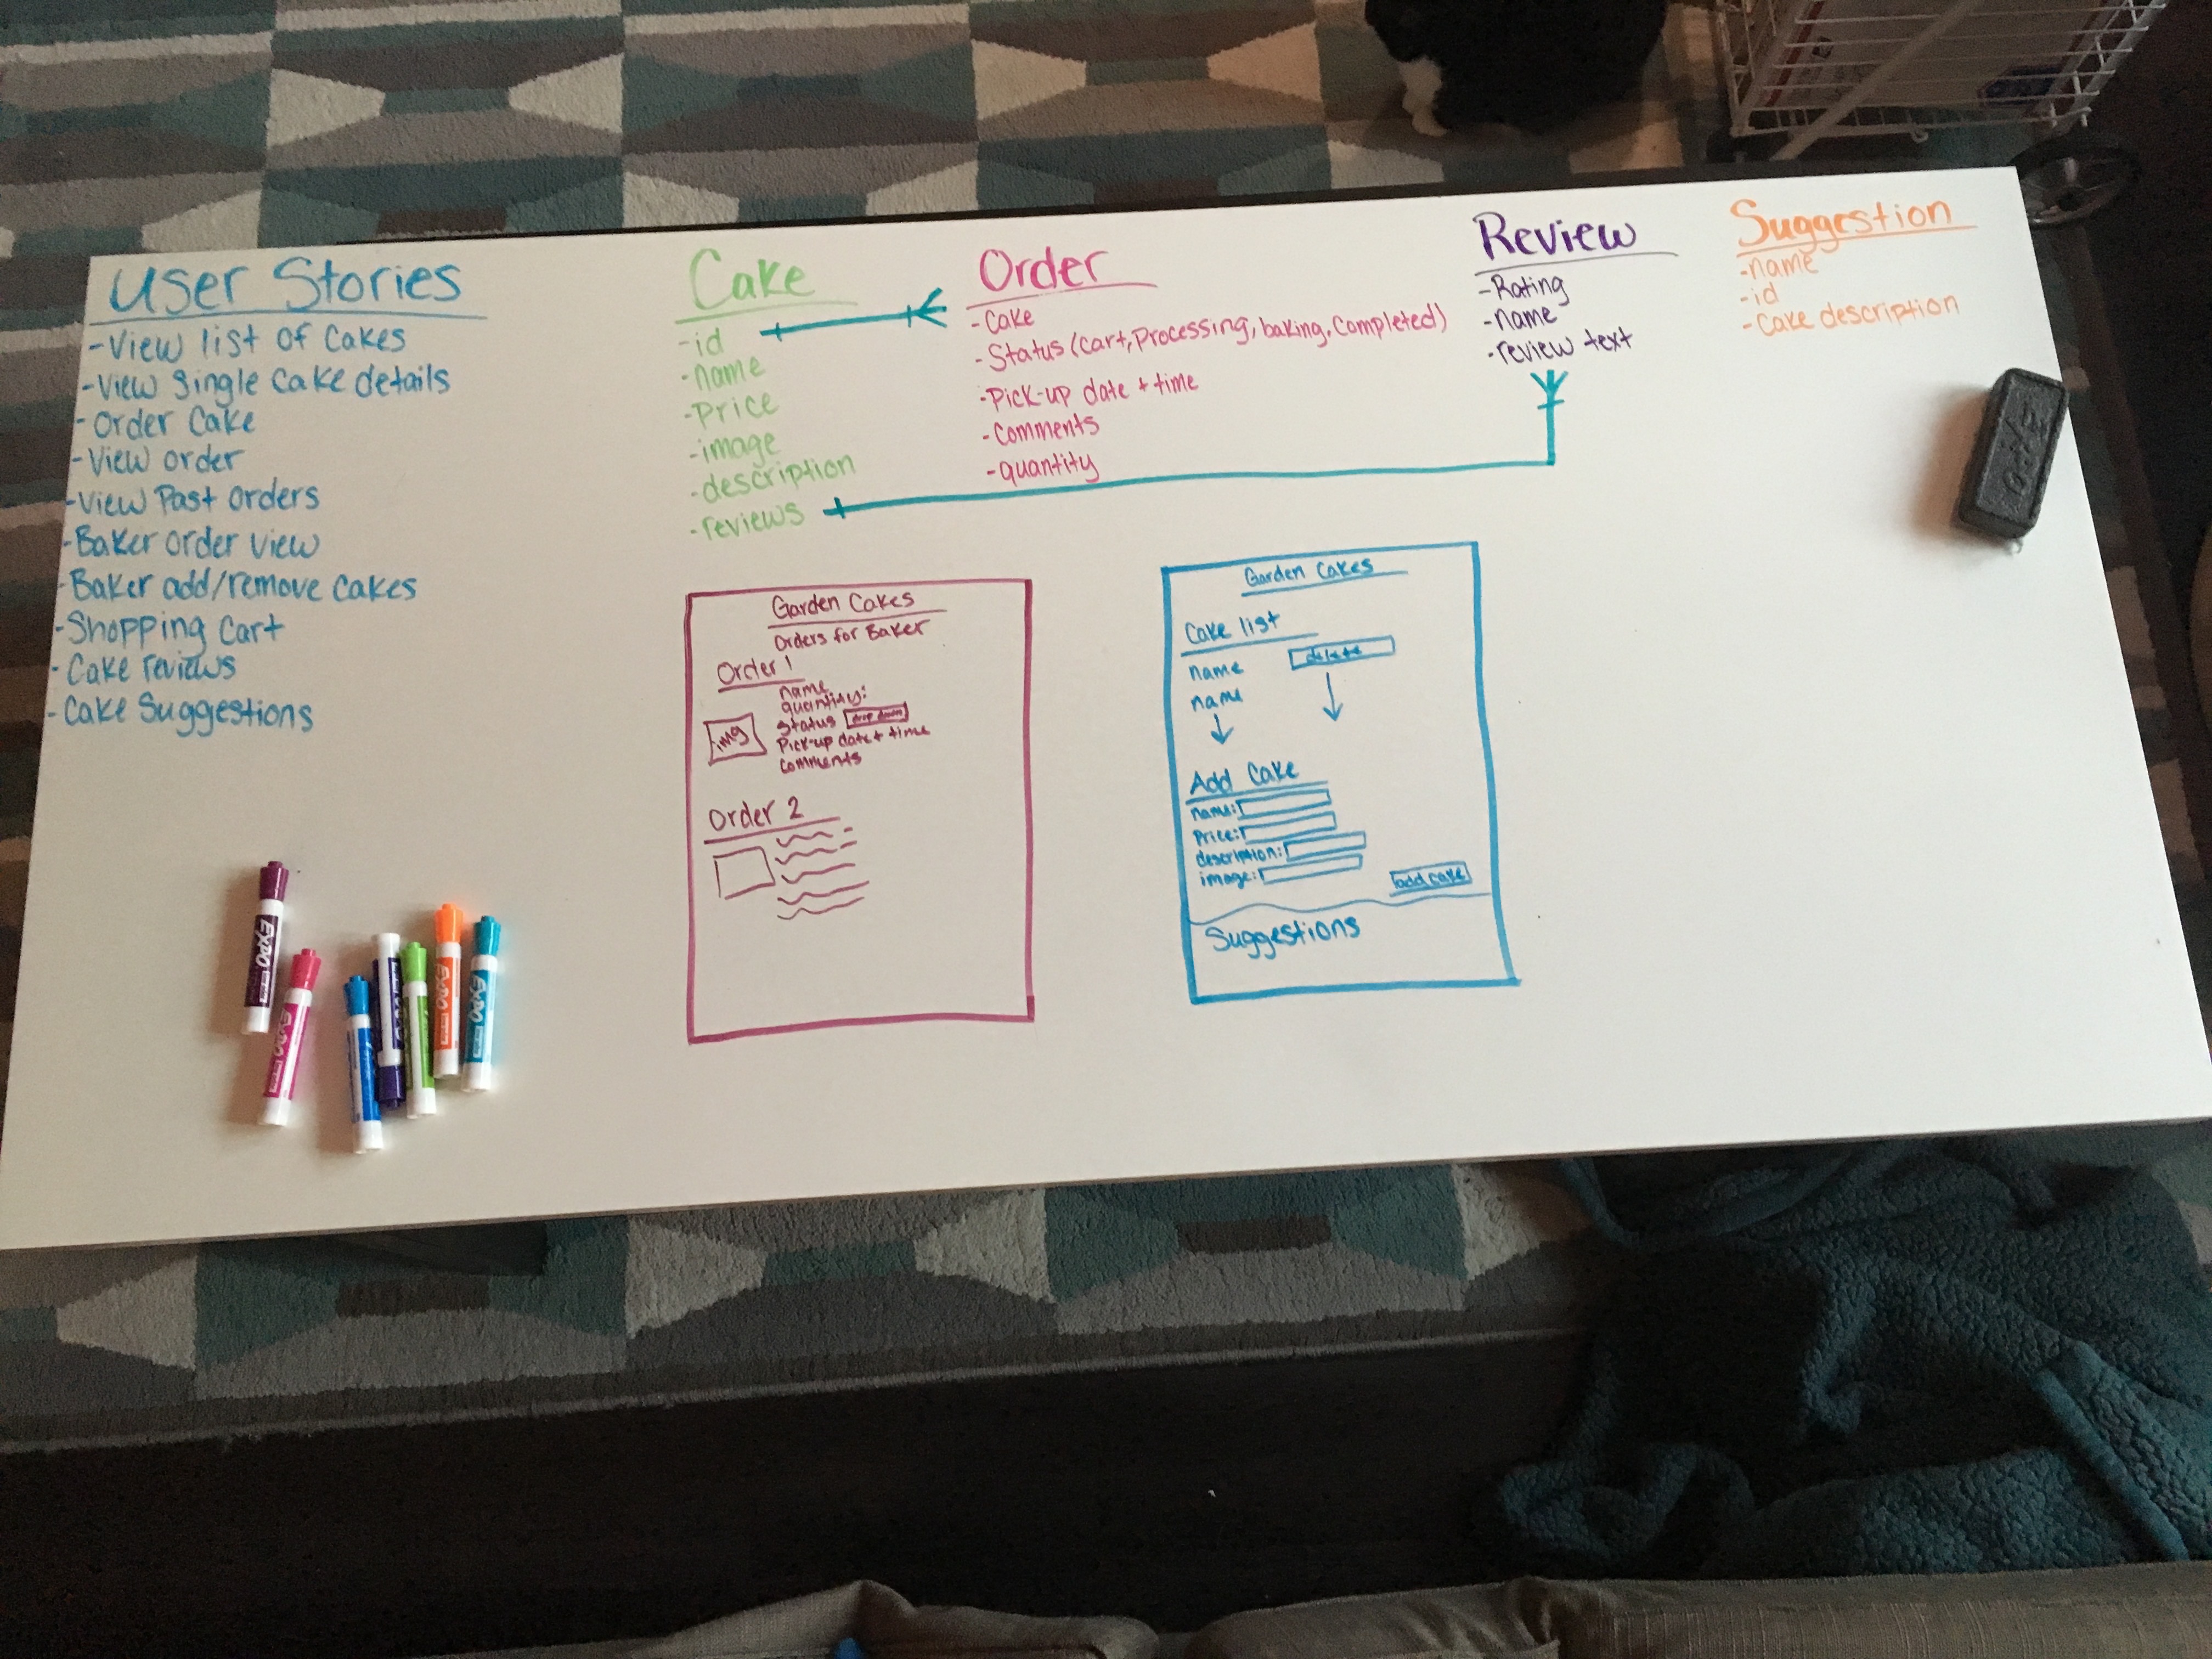 User Stories
-View list of Cakes
-View Single Cake details
-Order Cake
-View order
-View Past orders
-Baker order view
-Baker add/remove cakes
-Shopping Cart
-Cake reviews
-Cake Suggestions
Cake
-id
-name
-Price
-image
-description
-reviews
Order
-Cake
-Status (Cart, Processing, baking, Completed)
-Pick-up date + time
-Comments
-quantity
Review
-Rating
-name
-review text
Suggestion
-name
-id
-Cake description
Garden Cakes
Orders for Baker
Order 1
name
quantity:
Status drop down
Pick-up date + time
Comments
img
Order 2
Garden Cakes
Cake list
name delete
name
Add Cake
name:
Price:
description:
image:
add cake
Suggestions
EXPO
EXPO
EXPO
EXPO
EXPO